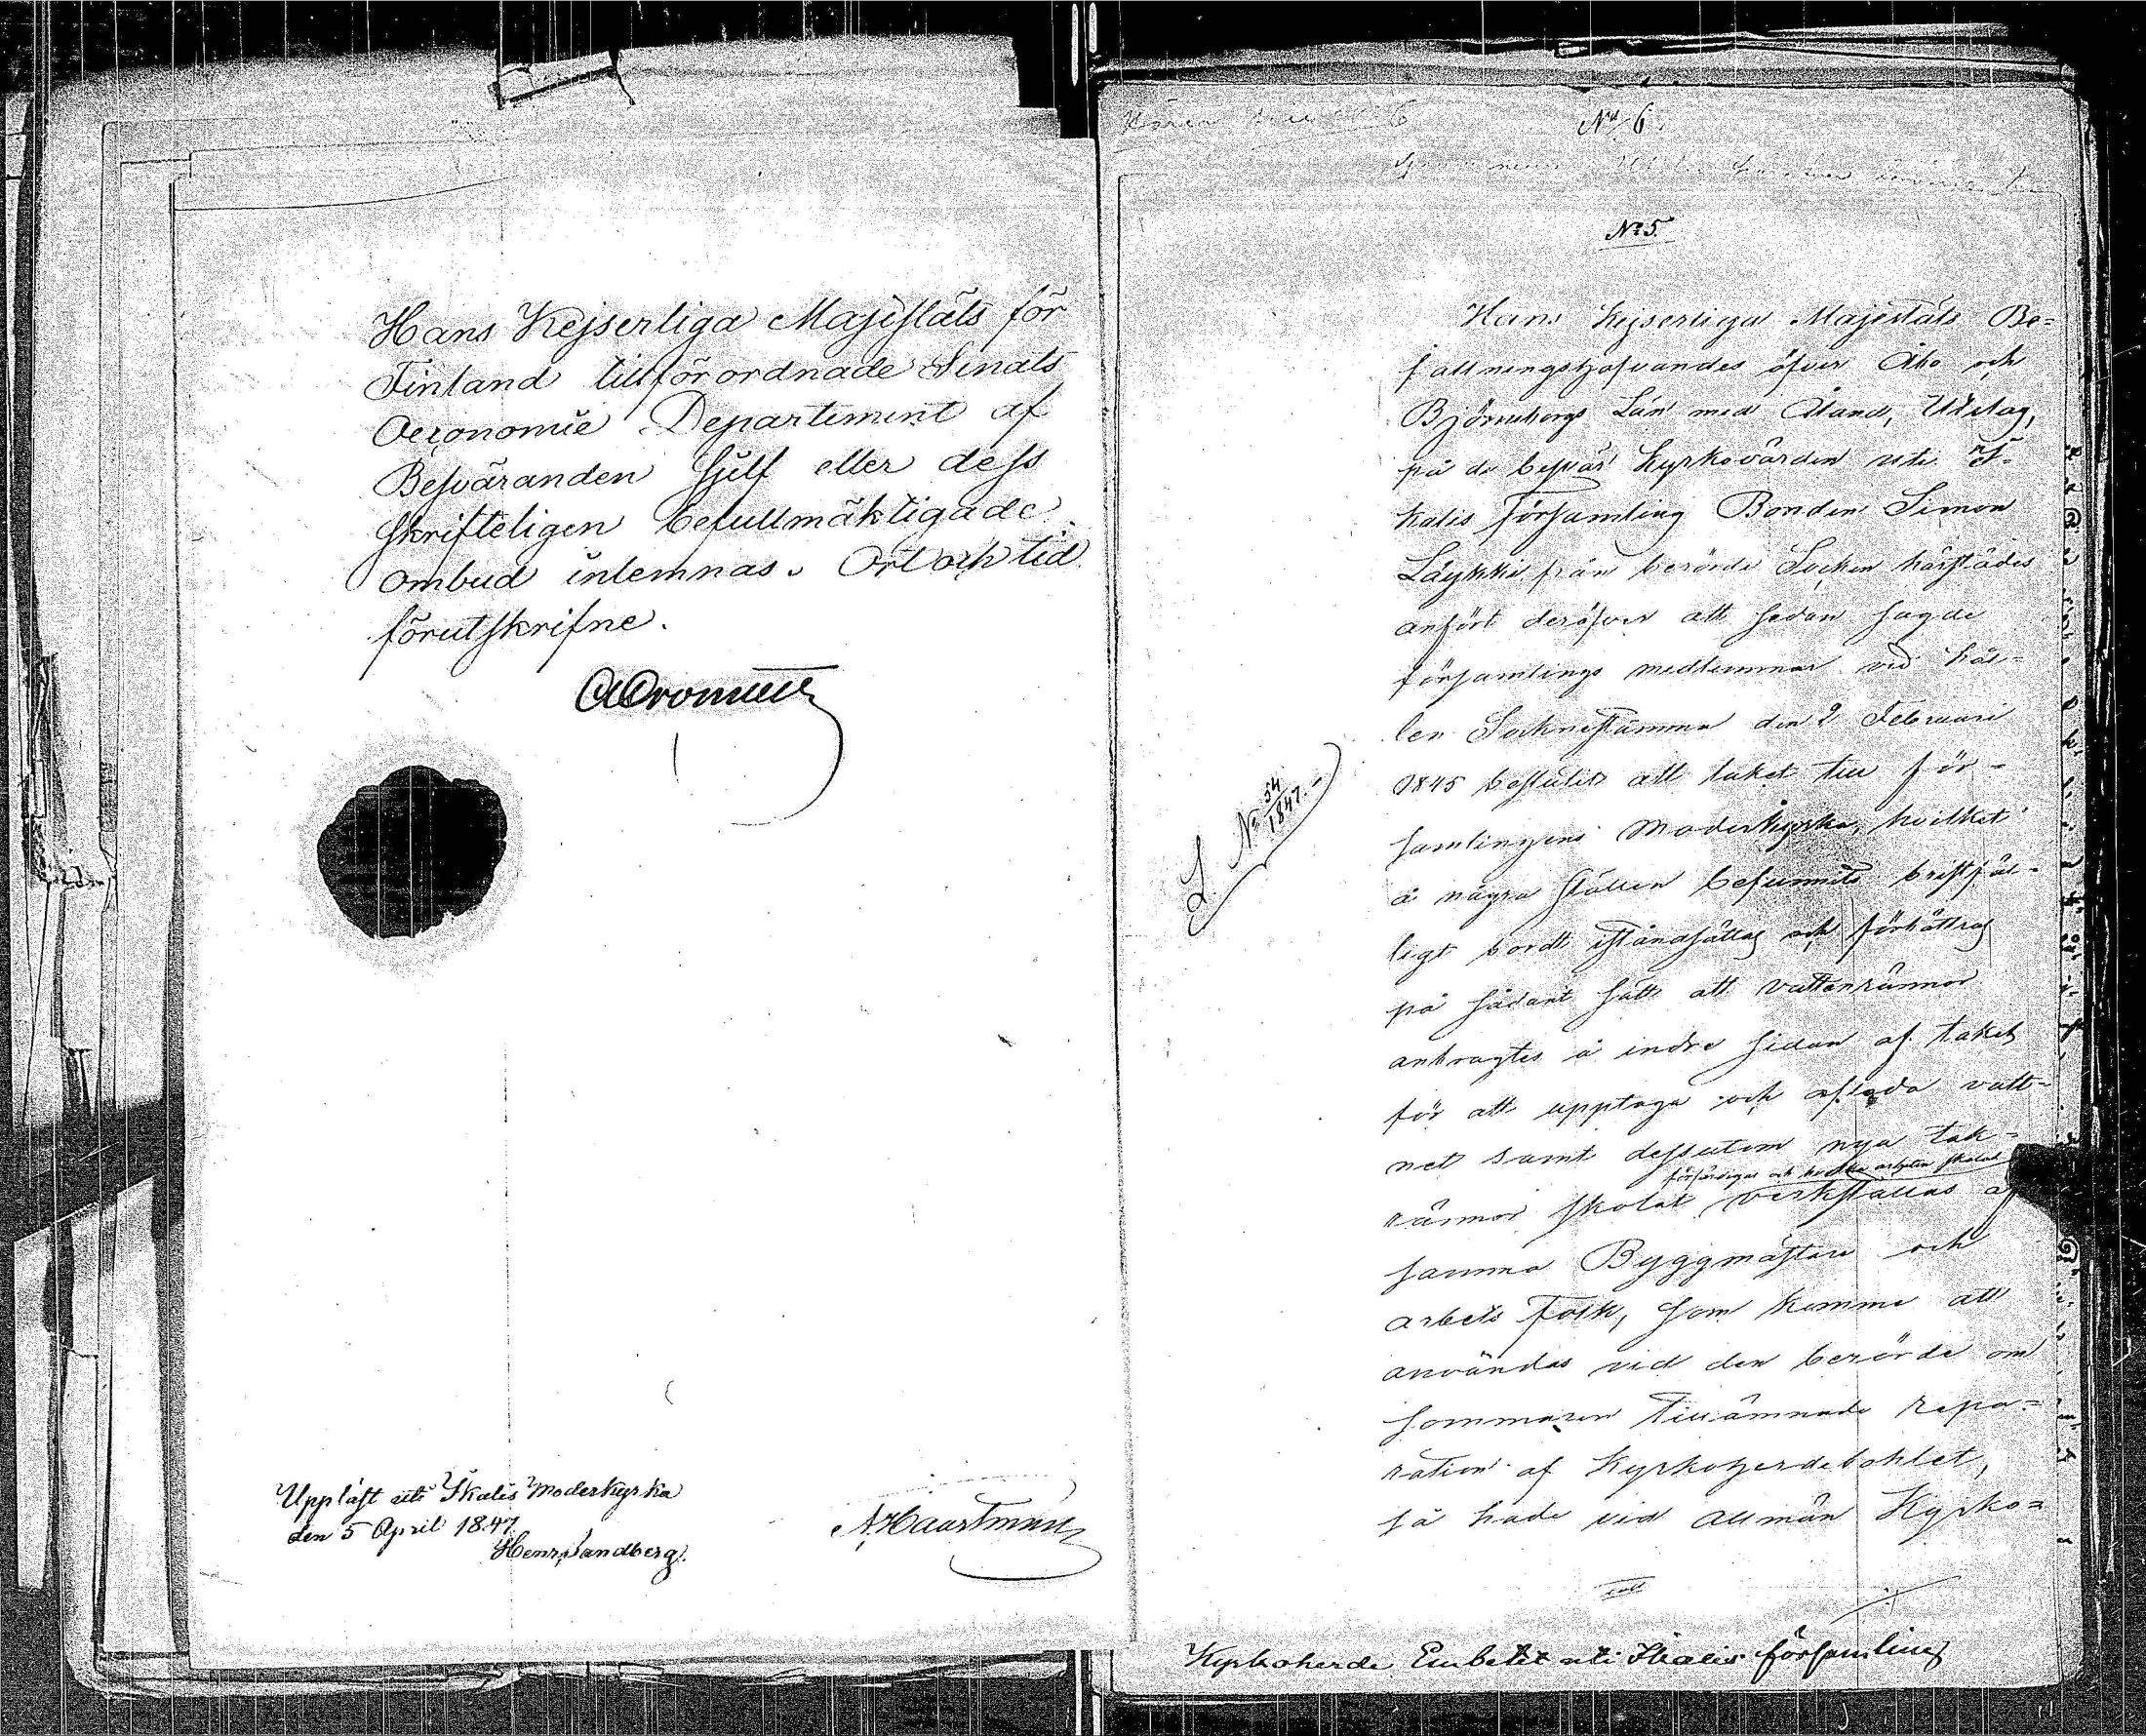 Hans Kejserliga Majestäts för
Finland tillförordnade Senats
Oeconomie Departement af
Besväranden sjelf eller dess
skrifteligen befullmäktigade
ombud inlemnas. Ort och tid
förutskrifne.
Uppläst uti Ikalis Moderkyrka
den 5 April 1847.
Henr. Sandberg.
A. Haartman
No 6.
No 5.
Hans Kejserliga Majestäts Be=
fallningshafvandes öfver Åbo och
Björneborgs Län med Åland, Utslag,
på de besvär Kyrkovärden uti I=
kalis församling Bonden Simon
Läykki från berörde Socken härstädes
anfört deröfver att sedan sagde
församlings medlemmar vid hål=
len Socknestämma den 2 Februari
1845 beslutit att taket till för=
samlingens Moderkyrka, hvilket
å några ställen befunnits bristfäl=
ligt bordt iståndsättas och förbättras
på sådant sätt att vattenrännor
anbragtes å indre sidan af taket
för att upptaga och afleda vatt=
net samt dessutom nya tak=
förfärdigas och hvilka arbeten skolat
rännor skolat verkställas af
samma Byggmästare och
arbets folk, som komme att
användas vid den berörde om
sommaren tillämnade repa=
ration af Kyrkoherdebohlet,
så hade vid allmän Kyrko=
L. No 54/1847.
Kyrkoherde Embetet uti Ikalis församling